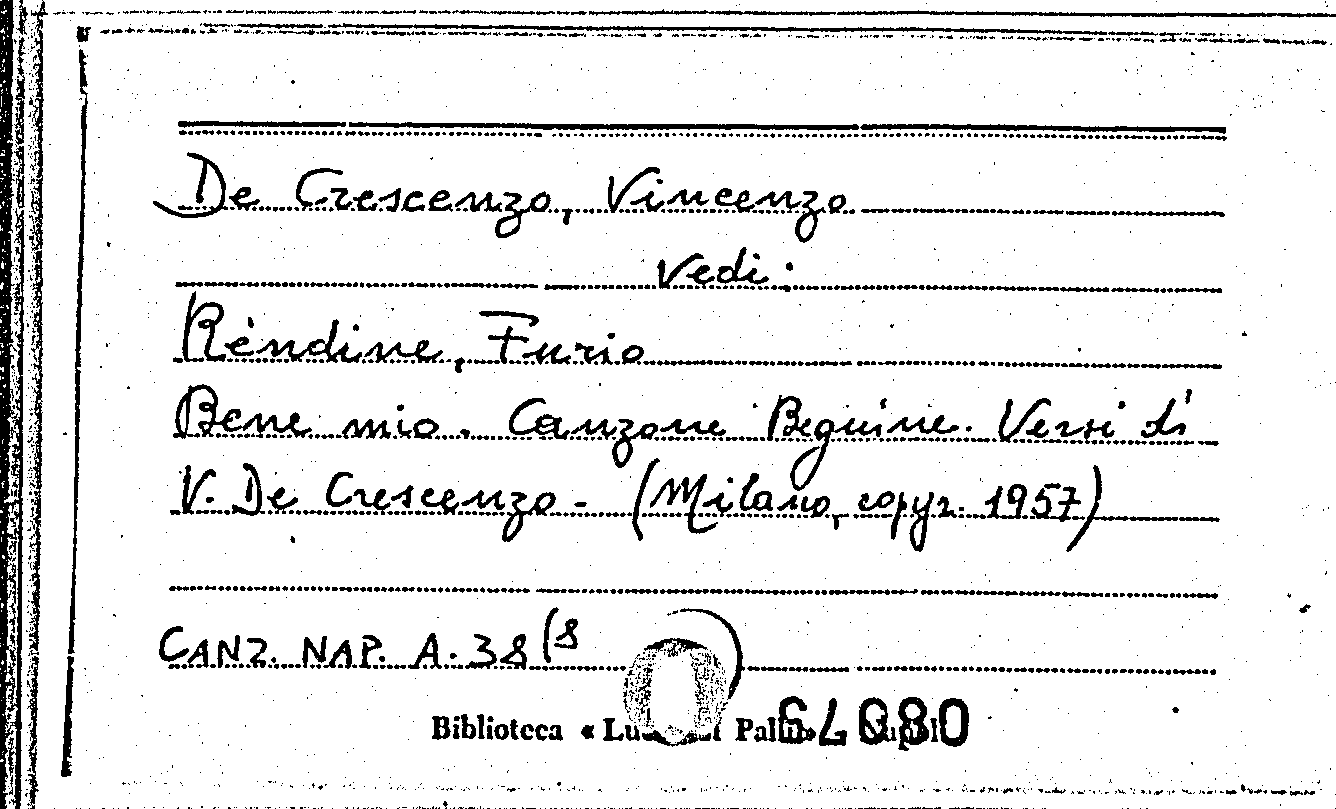 De Crescenzo, Vincenzo
Vedi:
Rèndine, Furio
Bene mio. Canzone Beguine. Versi di
V. De Crescenzo - (Milano, copyr. 1957)
CANZ. NAP. A. 38(8
Biblioteca «